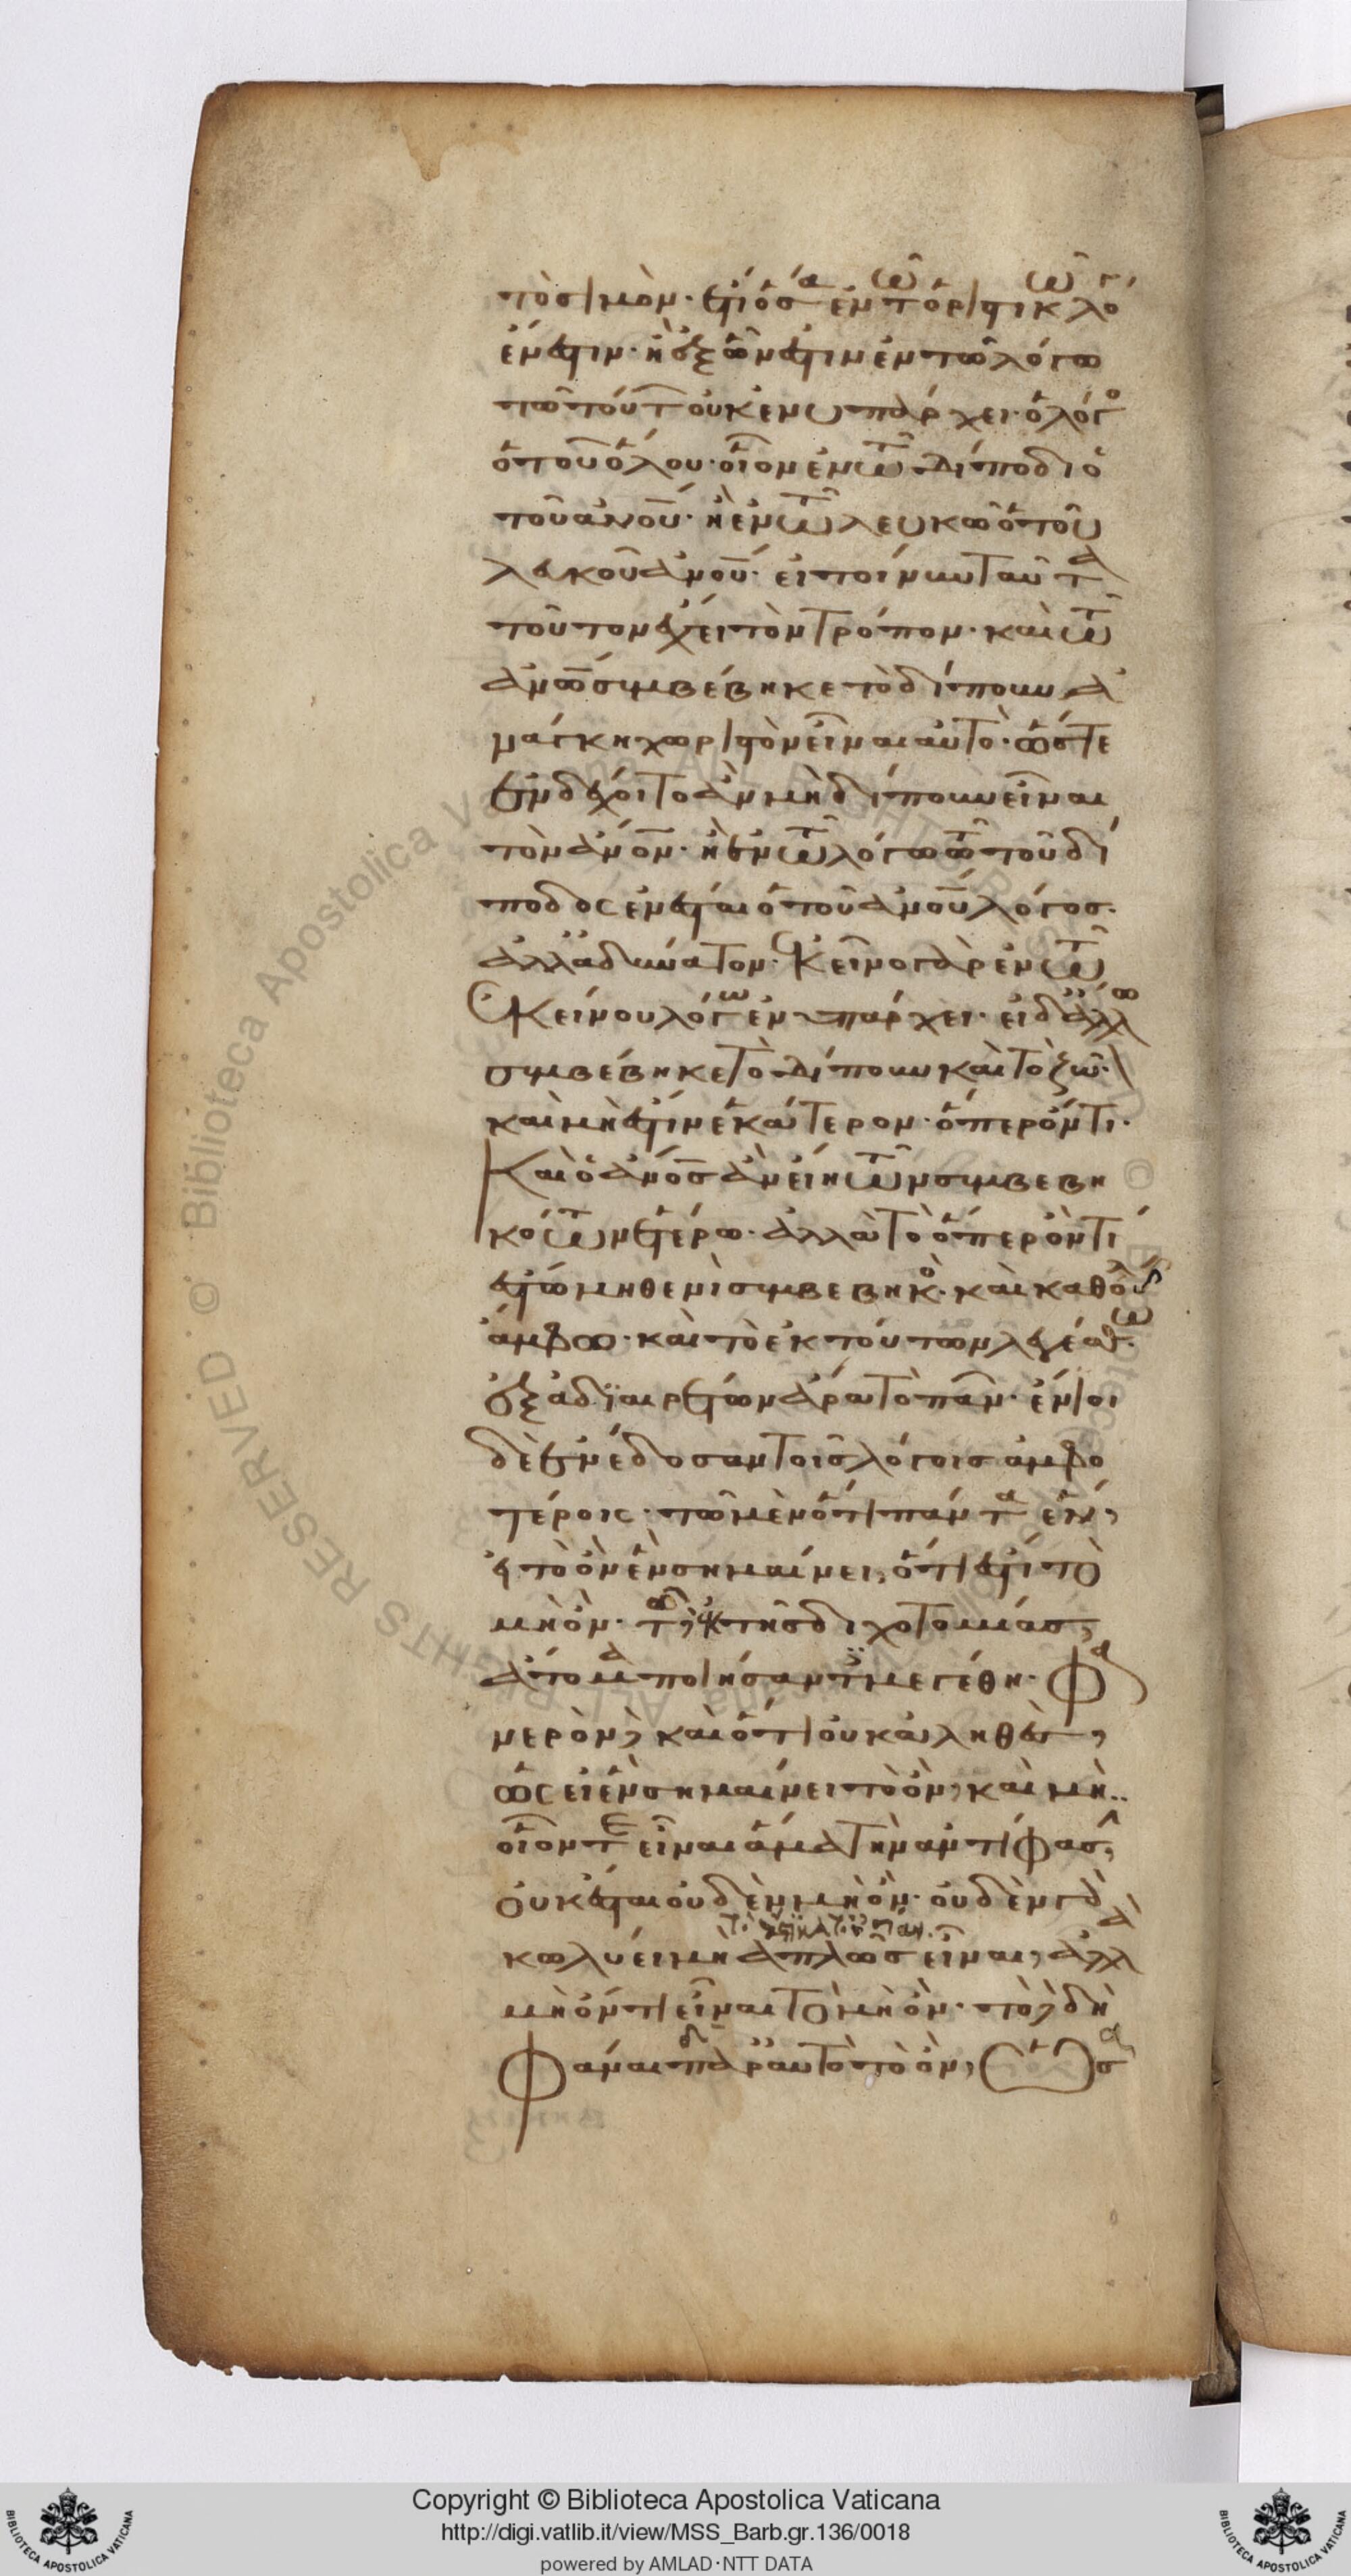 τὸ σιμόν· ἔτι ὅσα ἐν τῶ ὁριστικῶ λό
ἔνεστιν· ἢ ἐξ ὧν ἐστιν ἐν τῶ λόγω
τῶ τούτ οὐκ ἐνυπάρχει· ὁ λόγο
ὁ τοῦ ὅλου· οἷον ἐν τῶ δίποδι ὁ
τοῦ ἀνου· ἢ ἐν τῶ λευκῶ ὁ τοῦ
λευκοῦ ἀνου· εἰ τοίνυν ταῦτα
τοῦτον ἔχει τὸν τρόπον· καὶ τῶ
ἀνω συμβέβηκε τὸ δίπουν ἀ
νάγκη χωριστὸν εἶναι αὐτό· ὥστε
ἐνδέχοιτο ἂν μὴ δίπουν εἶναι
τὸν ἀνον· ἢ ἐν τῶ λόγω τῶ τοῦ δί
ποδος ἐνέσται ὁ τοῦ ἀνου λόγος·
ἀλλ' ἀδύνατον· ἐκεῖνο γὰρ ἐν τῶ
ἐκείνου λόγω ἐνυπάρχει· εἰ δ' ἄλλω
συμβέβηκε τὸ δίπουν καὶ τὸ ζῶ·
καὶ μὴ ἔστιν ἑκάτερον· ὅπερ ὄν τι·
καὶ ὁ ἀνος ἂν εἴη τῶν συμβεβη
κότων ἑτέρω· ἀλλὰ τὸ ὅπερ ὄν τι
ἔστω μηθενὶ συμβεβηκό· καὶ καθ' οὗ
ἄμφω· καὶ τὸ ἐκ τούτων λεγέσθω·
ἐξ ἀδιαιρέτων ἄρα τὸ πᾶν· ἔνιοι
δὲ ἐνέδοσαν τοῖς λόγοις ἀμφο
τέροις· τῶ μὲν ὅτι πάντα ἕν,
εἰ τὸ ὂν ἓν σημαίνει, ὅτι ἐστὶ τὸ
μὴ ὄν· τῶ δὲ ἐκ τῆς διχοτομίας,
ἄτομα ποιήσαντες μεγέθη· φα
νερὸν δὲ καὶ ὅτι οὐκ ἀληθὲς,
ὡς εἰ ἓν σημαίνει τὸ ὂν, καὶ μὴ
οἷον τε εἶναι ἅμα τὴν ἀντίφασιν,
οὐκ ἔσται οὐδὲν μὴ ὄν· οὐδὲν γὰρ
κωλύει μὴ ἁπλῶς εἶναι, ἀλλὰ
μὴ ὄν τι εἶναι τὸ μὴ ὄν· τὸ δὲ δὴ
φάναι παρ' αὐτὸ τὸ ὂν,